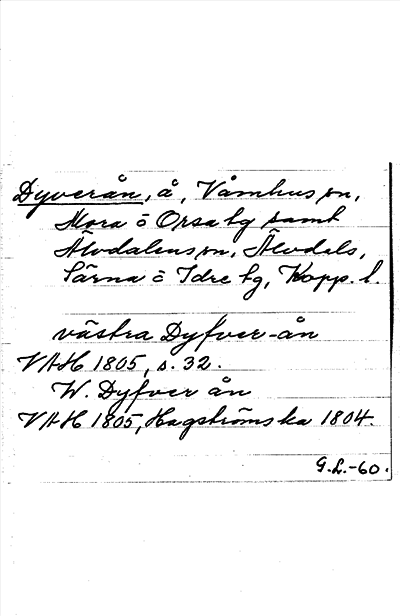 Dyverån, å, Våmhus sn,
Mora o Orsa tg samt
Älvdalens sn, Älvdals,
Särna o Idre tg, Kopp. l.
västra Dyfver-ån
VAH 1805, s. 32.
W. Dyfver ån
VAH 1805, Hagströms ka 1804.
G.L.-60.